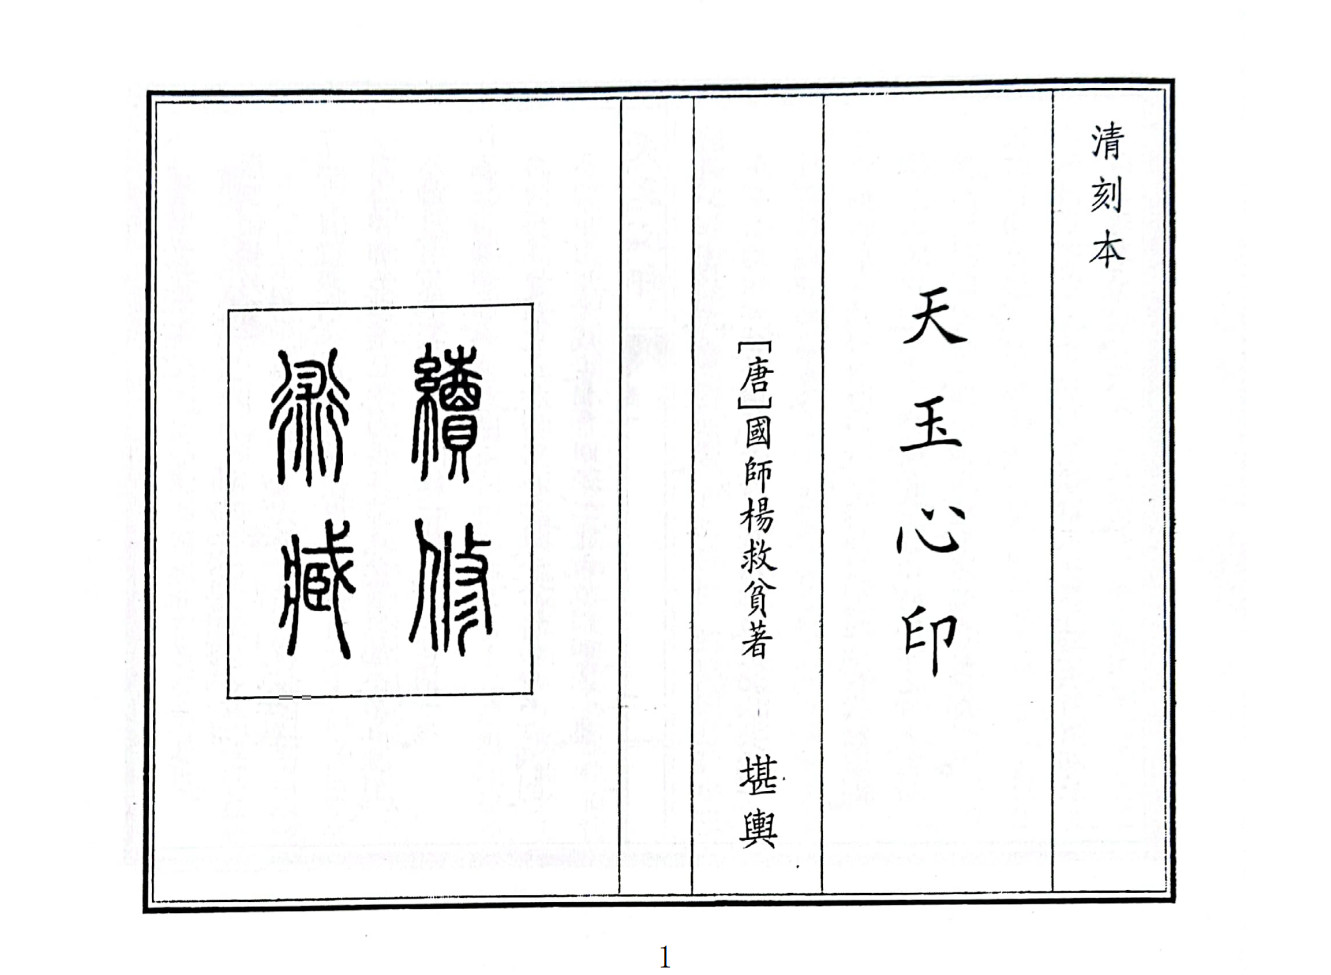 清刻本
天玉心印
[唐]國師楊救貧著 堪輿
續修
術藏
1